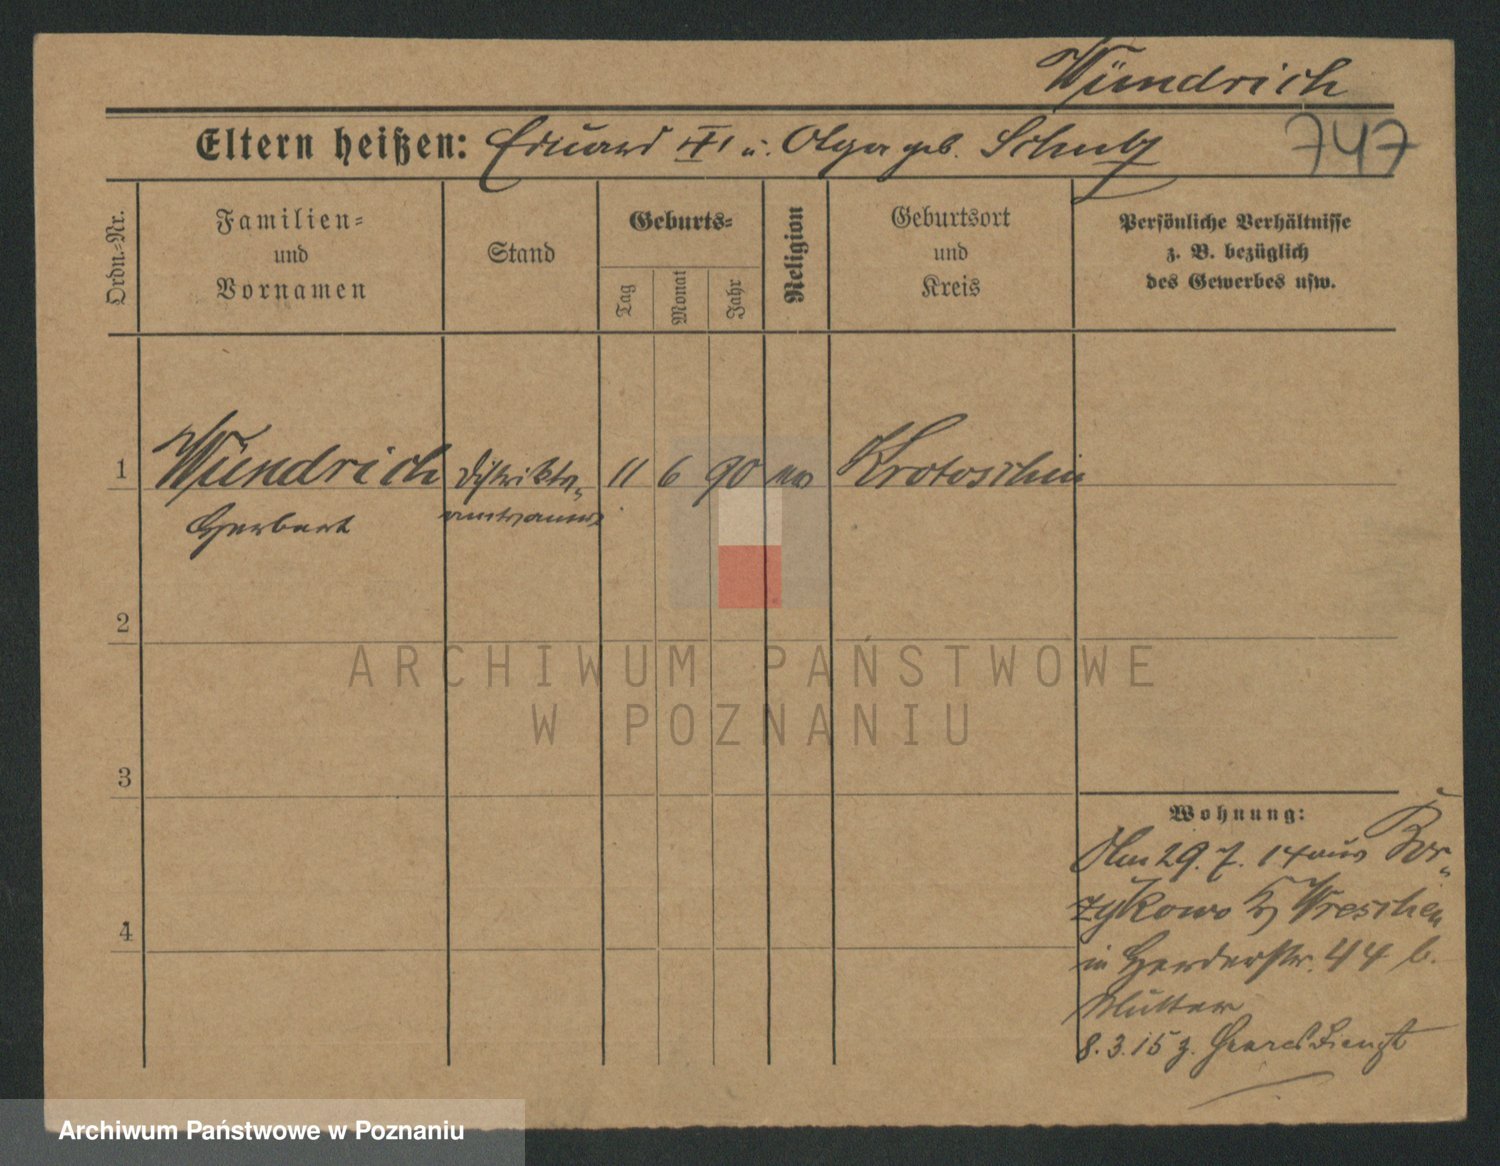 Wündrich
Eltern heißen: Eduard u. Olga geb. Schulz
747
Ordn.-Nr.
Familien-
und
Vornamen
Stand
Geburts-
Tag
Monat
Jahr
Religion
Geburtsort
und
Kreis
Persönliche Verhältnisse
z. B. bezüglich
des Gewerbes usw.
1 Wündrich Distrikts- 11 6 90 ev Krotoschin
Herbert
2
3
4
ARCHIWUM PAŃSTWOWE
W POZNANIU
Wohnung:
29. 7. 14 aus Bor-
zykowo Kr Wreschen
in Herderstr. 44 b.
Mutter
8. 3. 15 z. Heeresdienst
Archiwum Państwowe w Poznaniu